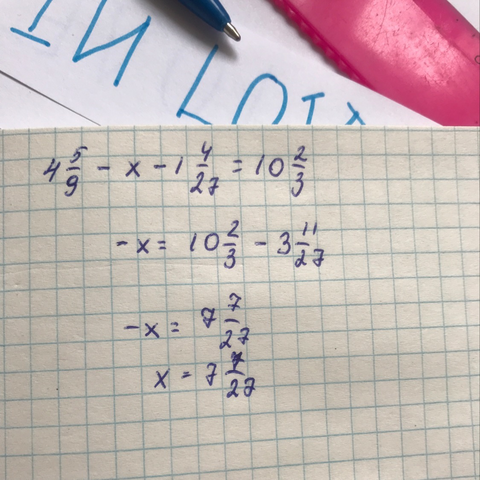 4 5/9 - x - 1 4/27 = 10 2/3
-x = 10 2/3 - 3 11/27
-x = 7 7/27
x = 7 7/27